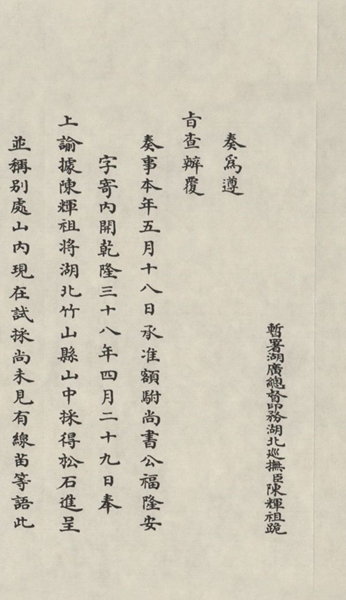 暫署湖廣總督印務湖北巡撫臣陳輝祖跪
奏為遵
旨查辦覆
奏事本年五月十八日承准額駙尚書公福隆安
字寄內開乾隆三十八年四月二十九日奉
上諭據陳輝祖將湖北竹山縣山中採得松石進呈
並稱別處山內現在試採尚未見有線苗等語此